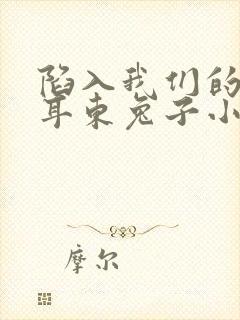 陷入我们的
耳束兔子小
摩尔